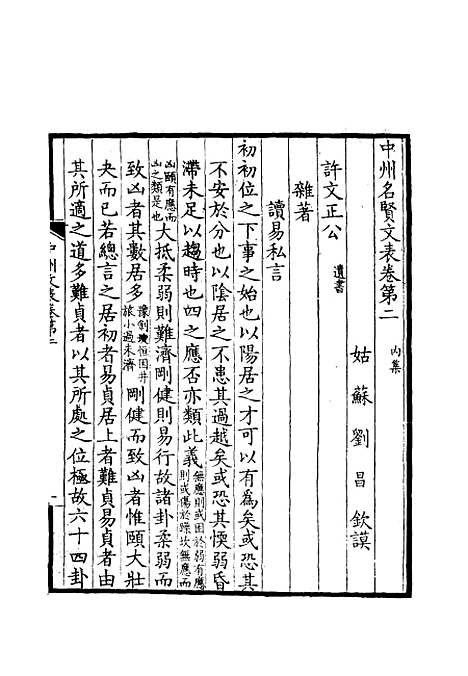 中州名賢文表卷第二 內集
姑蘇劉昌欽謨
許文正公 遺書
雜著
讀易私言
初初位之下事之始也以陽居之才可以有爲矣或恐其
不安於分也以陰居之不患其過越矣或恐其愞弱昏
滯未足以趨時也四之應否亦類此義 無應則或困於弱有應
則或傷於躁坎無應而
凶頤有應而
凶之類是也 大抵柔弱則難濟剛健則易行故諸卦柔弱而
致凶者其數居多 豫剝恒困井
旅小過未濟 剛健而致凶者惟頤大壯
夬而已若總言之居初者易貞居上者難貞易貞者由
其所適之道多難貞者以其所處之位極故六十四卦
中州文表卷第二
一